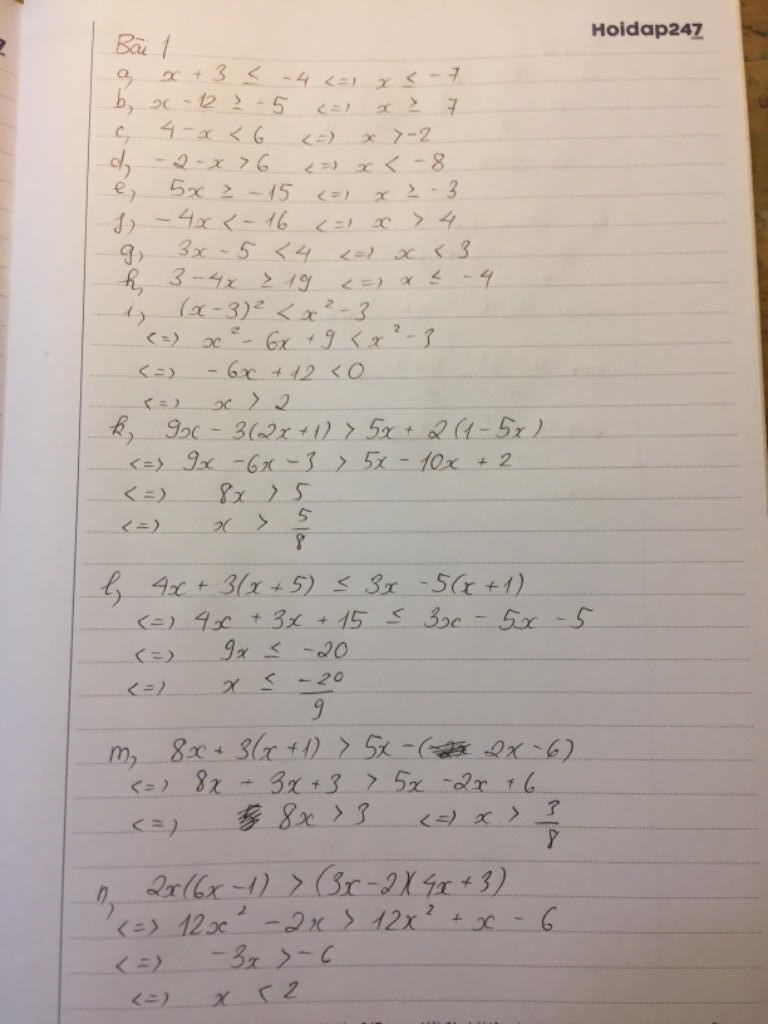 Hoidap247
.com
Bài 1
a, x + 3 ≤ -4 <=> x ≤ -7
b, x - 12 ≥ -5 <=> x ≥ 7
c, 4 - x < 6 <=> x > -2
d, -2 - x > 6 <=> x < -8
e, 5x ≥ -15 <=> x ≥ -3
f, -4x < -16 <=> x > 4
g, 3x - 5 < 4 <=> x < 3
h, 3 - 4x ≥ 19 <=> x ≤ -4
i, (x - 3)² < x² - 3
<=> x² - 6x + 9 < x² - 3
<=> -6x + 12 < 0
<=> x > 2
k, 9x - 3(2x + 1) > 5x + 2(1 - 5x)
<=> 9x - 6x - 3 > 5x - 10x + 2
<=> 8x > 5
<=> x > 5/8
l, 4x + 3(x + 5) ≤ 3x - 5(x + 1)
<=> 4x + 3x + 15 ≤ 3x - 5x - 5
<=> 9x ≤ -20
<=> x ≤ -20/9
m, 8x + 3(x + 1) > 5x - (2x - 6)
<=> 8x + 3x + 3 > 5x - 2x + 6
<=> 8x > 3 <=> x > 3/8
n, 2x(6x - 1) > (3x - 2)(4x + 3)
<=> 12x² - 2x > 12x² + x - 6
<=> -3x > -6
<=> x < 2